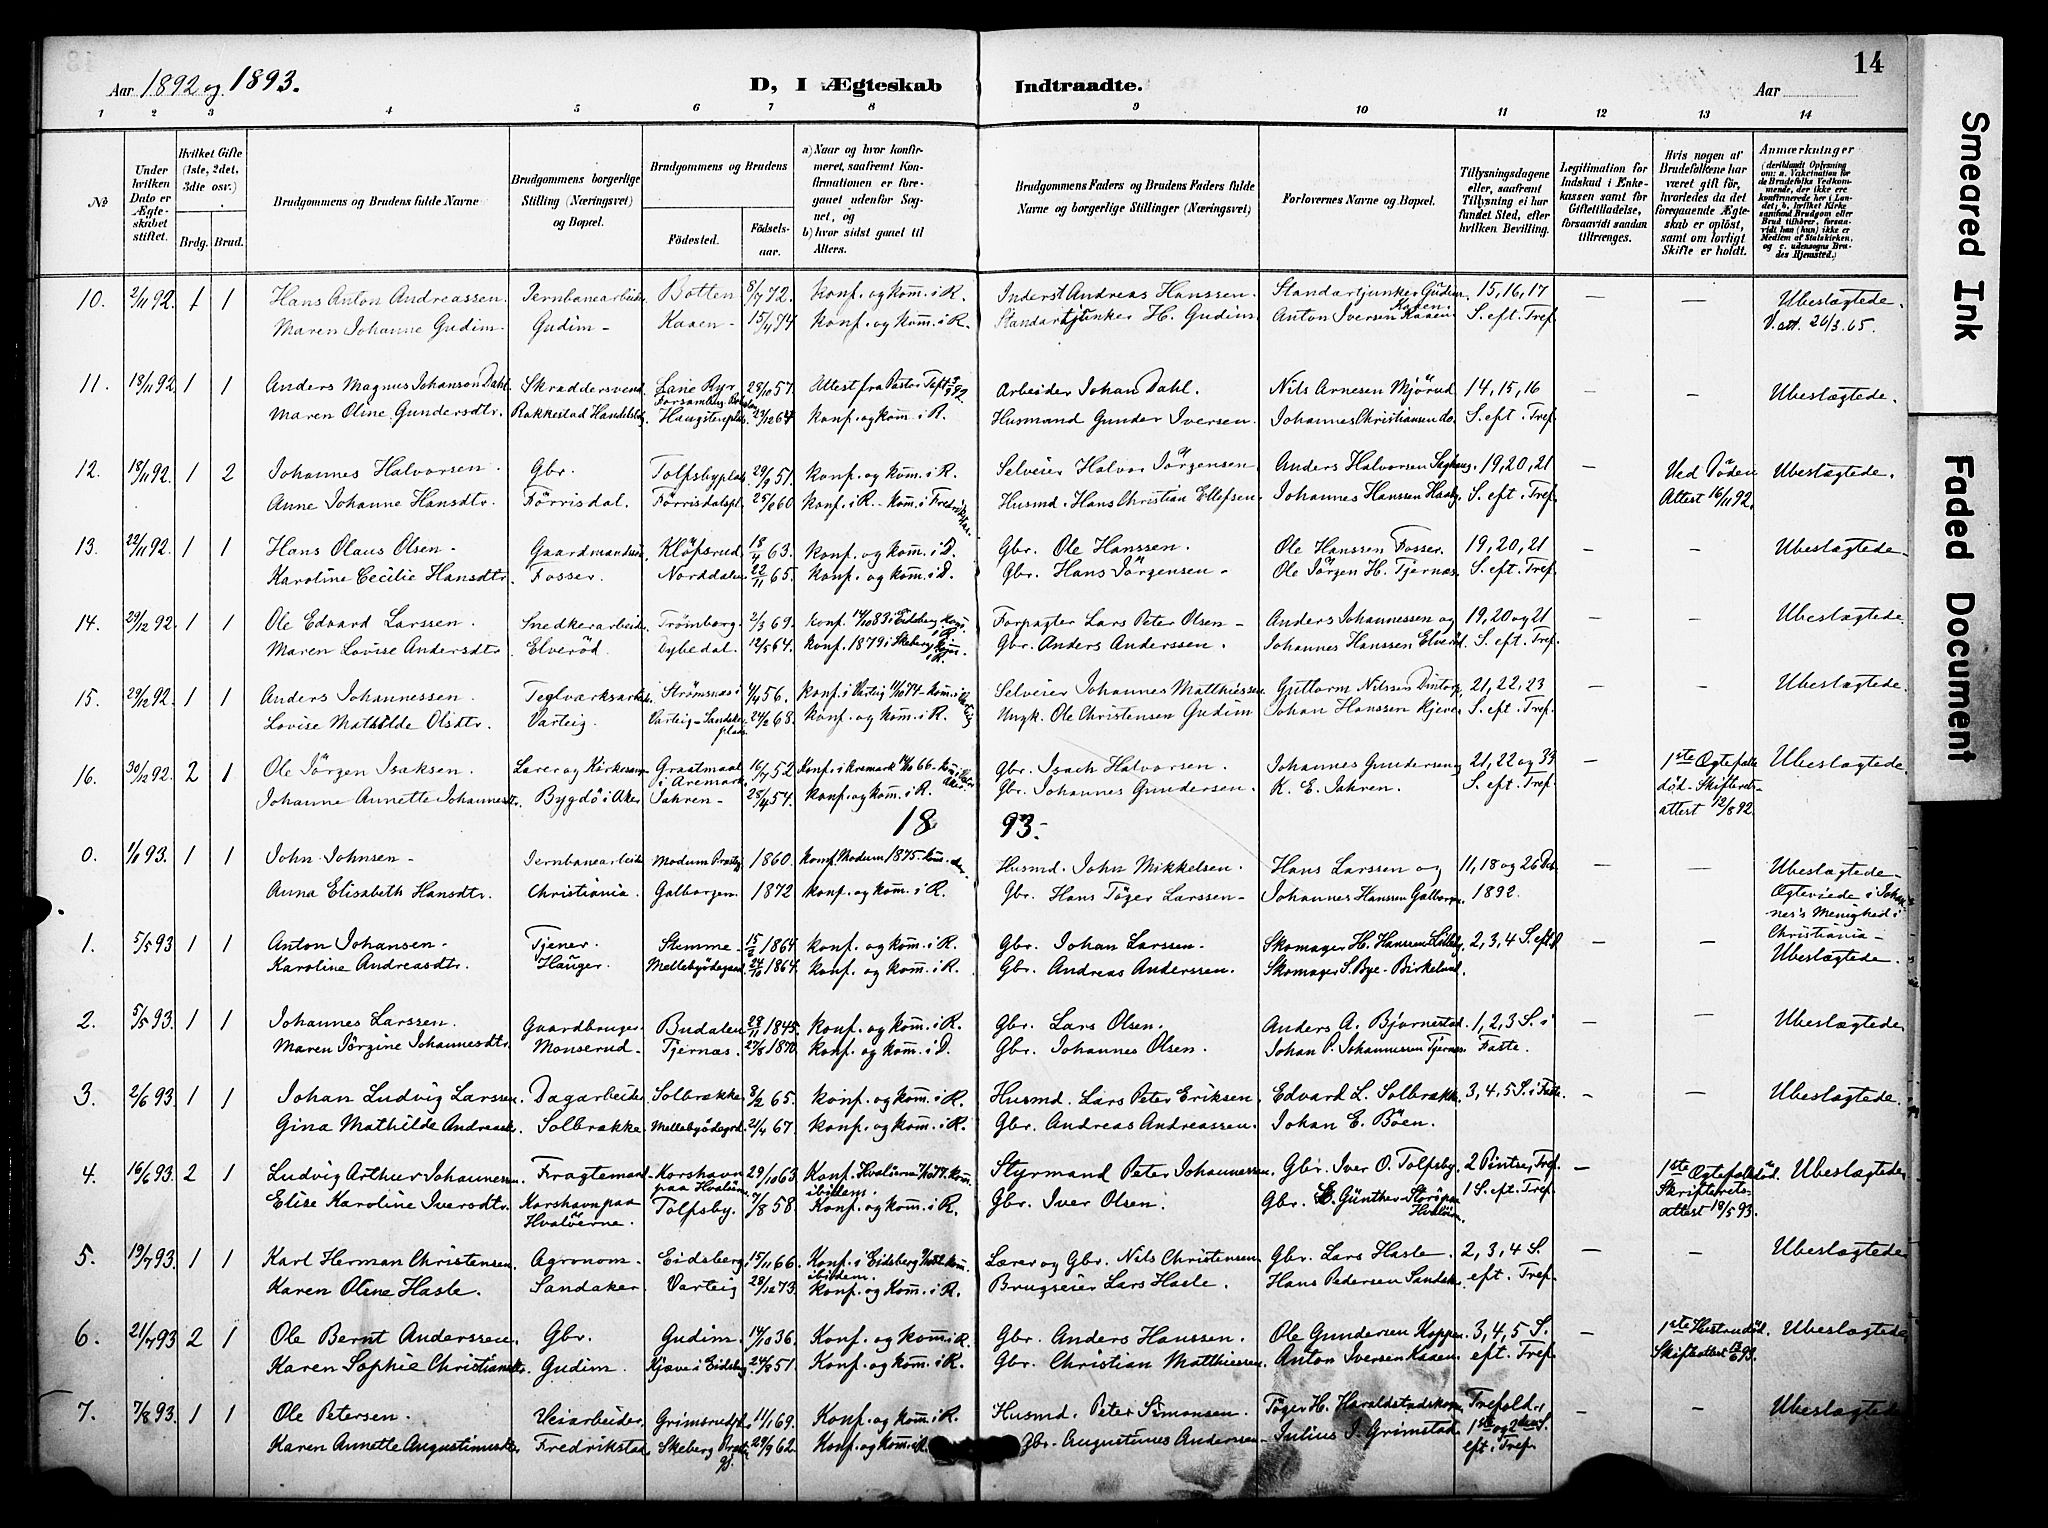 14
Aar 1892 og 1893.
D, I Ægteskab Indtraadte.
Aar
1 2 3 4 5 6 7 8 9 10 11 12 13 14
No
Under hvilken Dato er Ægteskabet stiftet.
Hvilket Gifte (1ste, 2det, 3die osv.)
Brdg. Brud.
Brudgommens og Brudens fulde Navne
Brudgommens borgerlige Stilling (Næringsvei) og Bopæl.
Brudgommens og Brudens
Fødested.
Fødselsaar.
a) Naar og hvor konfirmeret, saafremt Konfirmationen er foregaaet udenfor Sognet, og
b) hvor sidst gaaet til Alters.
Brudgommens Faders og Brudens Faders fulde Navne og borgerlige Stillinger (Næringsvei)
Forlovernes Navne og Bopæl.
Tillysningsdagene eller, saafremt Tillysning ei har fundet Sted, efter hvilken Bevilling.
Legitimation for Indskud i Enkekassen samt for Giftetilladelse, forsaavidt saadan tiltrænges.
Hvis nogen af Brudefolkene har været gift før, hvorledes da det foregaaende Ægteskab er opløst, samt om lovligt Skifte er holdt.
Anmærkninger
10. 2/11 92. 1 1 Hans Anton Andreassen. Jernbanearbeider Botten 8/7 72. Konf. og kom. i R. Inderst Andreas Hanssen. Standartjunker Gudim Kaaen. 15, 16, 17 — — Ubeslægtede.
Maren Johanne Gudim. Gudim — Kaaen — 15/4 74 konf. og kom. i R. Standartjunker H. Gudim. Anton Iversen Kaaen. S. eft. Tref. V. att. 26/3 65.
11. 18/11 92 1 1 Anders Magnus Johanson Dahl. Skræddersvend Lane Ryr 28/10 57. Attest fra Pastor Arbeider Johan Dahl. Nils Arnesen Mjørud 14, 15, 16 — Ubeslægtede.
Maren Oline Gundersdtr. Rakkestad 24/12 64 konf. og kom. i R. Husmand Gunder Iversen. Johannes Christiansen do. S. eft. Tref.
12. 18/11 92. 1 2 Johannes Halvorsen. Gbr. Tolfsbyplads 29/9 51. konf. og kom. i R. Selveier Halvor Jörgensen Anders Halvorsen 19, 20, 21 — Ved Döden Ubeslægtede.
Anne Johanne Hansdtr. Förrisdal. Förrisdalspl. konf. i R. - kom. i Fredrikshald. Husmd. Hans Christian Ellefsen. Johannes Hanssen S. eft. Tref. Attest 16/11 92.
13. 22/11 92. 1 1 Hans Olaus Olsen — Gaardmandssön Klöfsrud. 18/4 63. konf. og kom. i D. Gbr. Ole Hanssen. Ole Hanssen Fosser. 19, 20, 21 — — Ubeslægtede.
Karoline Cecilie Hansdtr. Fosser. Norddalen 22/11 65. konf. og kom. i D. Gbr. Hans Jörgensen — Ole Jörgen H. Tjernæs. S. eft. Tref.
14. 29/12 92. 1 1 Ole Edvard Larssen. Snedkerarbeider. Trömborg. 2/3 69. konf. 14/10 83 i Eidsberg. kom. i R. Forpagter Lars Peter Olsen — Anders Johannessen og 19, 20 og 21 — Ubeslægtede.
Maren Lovise Andersdtr. Elveröd. Dybedal. 12/5 64. konf. 1879 i Skeberg kom. i R. Gbr. Anders Anderssen. Johannes Hanssen Elveröd. S. eft. Tref.
15. 29/12 92. 1 1 Anders Johannessen. Teglværksarbeider Strömsnæs i 7/4 56. konf. i Varteig 11/10 74 - kom. i Varteig Selveier Johannes Matthiessen Guttorm Nilssen 21, 22, 23 — Ubeslægtede.
Lovise Mathilde Olsdtr. Varteig. Varteig - Sandakerplads. 24/2 68. konf. og kom. i R. Ungk. Ole Christensen Gudim Johan Hanssen S. eft. Tref.
16. 30/12 92. 2 1 Ole Jörgen Isaksen. Lærer og Kirkesanger Graatmaal i Aremark 16/7 52 konf. i Aremark 14/10 66 - kom. i Vestre Aker. Gbr. Isach Halvorsen. Johannes Gundersen og 21, 22 og 39 — 1ste Ægtefælle Ubeslægtede.
Johanne Annette Johannesdtr. Bygdö i Aker. Jahren — 28/4 54. konf. og kom. i R. Gbr. Johannes Gundersen. K. E. Jahren. S. eft. Tref. död - Skifterets-
attest 12/8 92.
1893.
0. 1/1 93. 1 1 John Johnsen — Jernbanearbeider Modum 1860. konf. Modum 1875. kom. do. Husmd. John Mikkelsen. Hans Larssen og 11, 18 og 26 Dec — — Ubeslægtede —
Anna Elisabeth Hansdtr. Christiania. Galborgen. 1872 konf. og kom. i R. Gbr. Hans Töger Larssen — Johannes Hanssen Galborgen. 1892. Ægteviede i Johannes's Menighed i Christiania —
1. 5/5 93 1 1 Anton Johansen. Tjener. Slemme — 15/2 1864 konf. og kom. i R. Gbr. Johan Larssen. Skomager H. Hanssen 2, 3, 4 S. eft. P. — —
Karoline Andreasdtr. Hauger. Mellebyödegaard. 24/10 1864. konf. og kom. i R. Gbr. Andreas Anderssen. Skomager S. Bye - Birkelund. Ubeslægtede.
2. 5/5 93. 1 1 Johannes Larssen. Gaardbruger. Budalen 28/11 1845. konf. og kom. i R. Gbr. Lars Olsen. Anders A. Bjørnestad. 1, 2, 3 S. i — — Ubeslægtede
Maren Jörgine Johannesdtr. Monserud. Tjernæs. 27/8 1870. konf. og kom. i D. Gbr. Johannes Olsen. Johan P. Johannesen Tjernæs. Faste.
3. 2/6 93 1 1 Johan Ludvig Larssen. Dagarbeider Solbrække. 8/2 65. konf. og kom. i R. Husmd. Lars Peter Eriksen Edvard L. Solbrække 3, 4, 5 S. i Faste. — — Ubeslægtede.
Gina Mathilde Andreasdtr. Solbrække. Mellebyödegrd. 2/4 67. konf. og kom. i R. Gbr. Andreas Andreassen. Johan E. Böen.
4. 16/6 93. 2 1 Ludvig Arthur Johannessen. Fragtemand. Korshavn paa Hvalöerne. 29/10 63. Konf. Hvalöerne 7/10 77. kom. ibidem. Styrmand Peter Johannessen. Gbr. Iver O. Tolfsby. 2 Pintse, Tref. — 1ste Ægtefælle död. Ubeslægtede
Elise Karoline Iversdtr. Korshavn paa Hvalöerne. Tolfsby. 7/8 58. Konf. og kom. i R. Gbr. Iver Olsen. Gbr. L. Günther Hvalöerne. 1 S. eft. Tref. Skifterets-
attest 18/5 93.
5. 19/7 93. 1 1 Karl Herman Christensen. Agronom — Eidsberg. 15/11 66. Konf. i Eidsberg kom. ibidem. Lærer og Gbr. Nils Christensen Gbr. Lars Hasle. 2, 3, 4 S. — — Ubeslægtede
Karen Oline Hasle. Sandaker. Varteig 28/12 73. konf. og kom. i R. Brugseier Lars Hasle. Hans Pedersen Sandaker. eft. Tref.
6. 21/7 93 2 1 Ole Bernt Anderssen. Gbr. Gudim. 14/10 36. Konf. og kom. i R. Gbr. Anders Hanssen. Ole Gundersen Koppen. 3, 4, 5 S. — 1ste Hustru död. Ubeslægtede
Karen Sophie Christiansdtr. Gudim. Kjæve i Eidsberg. 24/8 51. Konf. og kom. i R. Gbr. Christian Matthiessen. Anton Iversen Kaaen. eft. Tref. Skifteattest 12/6 93.
7. 7/8 93. 1 1 Ole Petersen. Veiarbeider Grimsrud 11/1 69. Konf. og kom. i R. Husmd. Peter Simonsen. Töger H. Haraldstadskom. Trefold. — — Ubeslægtede
Karen Annette Augustinusdtr. Fredrikstad. Skeberg 29/9 62. Konf. og kom. i R. Gbr. Augustinus Andersen — Julius J. Grimstad. 1ste og 2den S.
eft. Tref.
Smeared Ink
Faded Document